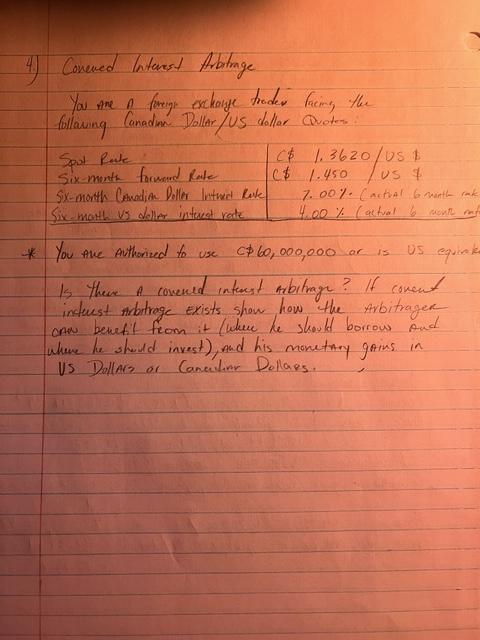 4) Covered Interest Arbitrage
You are a foreign exchange trader facing the
following Canadian Dollar/US dollar Quotes:
Spot Rate C$ 1.3620/US $
Six-month forward Rate C$ 1.450 /US $
Six-month Canadian Dollar Interest Rate 7.00% (actual 6 month rate
Six-month US dollar interest rate 4.00% (actual 6 month rat
* You are Authorized to use C$60,000,000 or is US equivale
Is There A covered interest Arbitrage? If covent
interest Arbitrage exists show how the Arbitrager
can benefit from it (where he should borrow and
where he should invest), and his monetary gains in
US Dollars or Canadian Dollars.